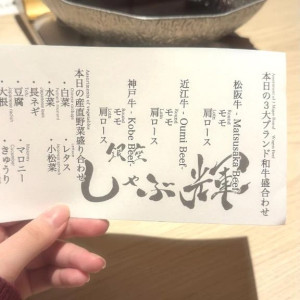 本日の3大ブランド和牛盛合わせ
松阪牛 - Matsusaka Beef
モモ
肩ロース
近江牛 - Oumi Beef
モモ
肩ロース
神戸牛 - Kobe Beef
モモ
肩ロース
本日の産直野菜盛り合わせ
Assortments of vegetable
・白菜
・レタス
・水菜
・小松菜
・長ネギ
・豆腐
・マロニー
・大根
・きゅうり
銀座
しゃぶ輝